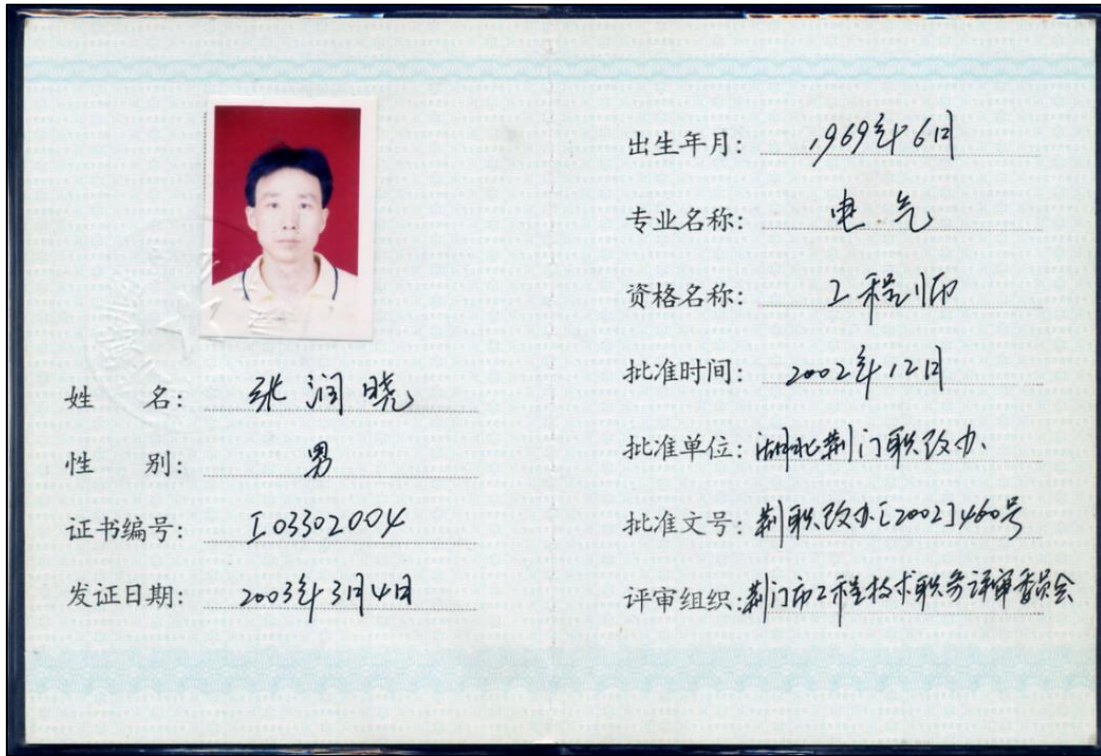 姓 名: 张润晓
性 别: 男
证书编号: I03302004
发证日期: 2003年3月4日
出生年月: 1969年6月
专业名称: 电气
资格名称: 工程师
批准时间: 2002年12月
批准单位: 湖北荆门职改办
批准文号: 荆职改办[2002]460号
评审组织: 荆门市工程技术职务评审委员会